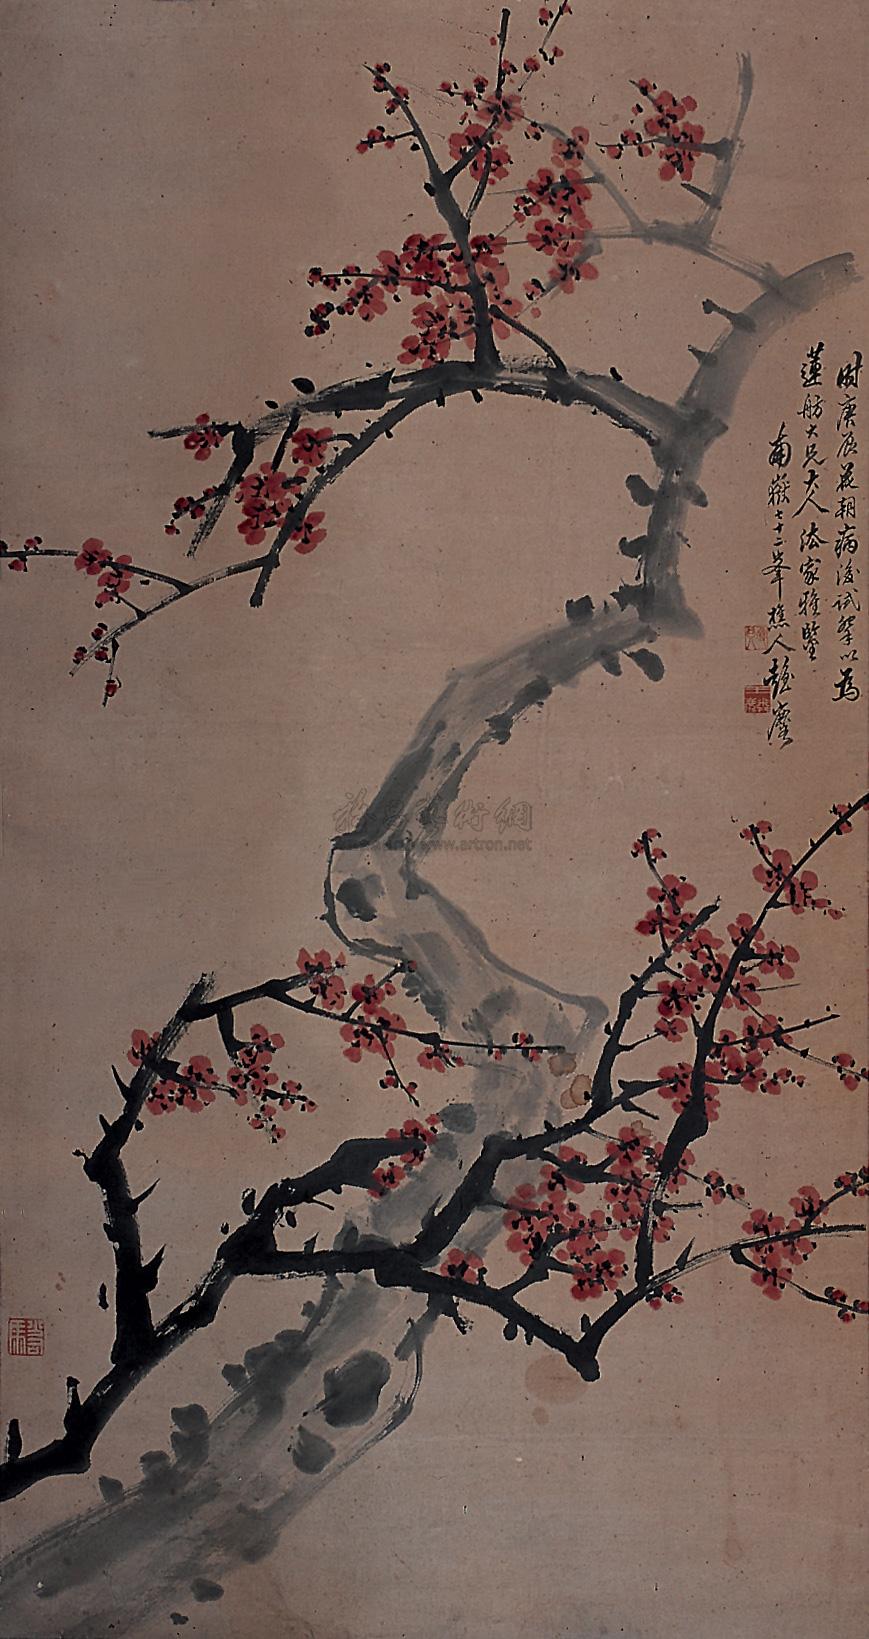 時庚辰花朝病後試筆以為
蓮舫大兄大人法家雅鑒
南嶽七十二峯樵人
雅昌藝術網
www.artron.net